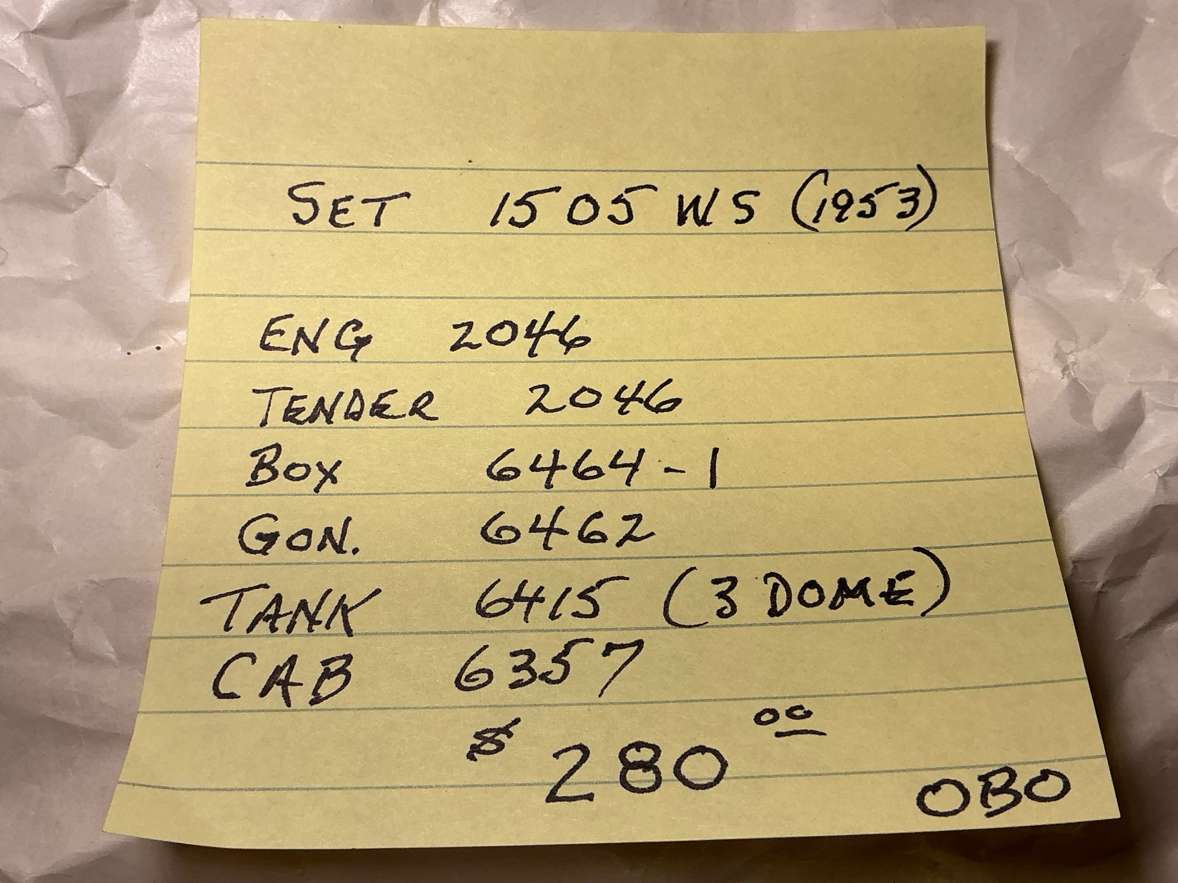 SET 1505 WS (1953)
ENG 2046
TENDER 2046
BOX 6464-1
GON. 6462
TANK 6415 (3 DOME)
CAB 6357
$ 280 00
OBO